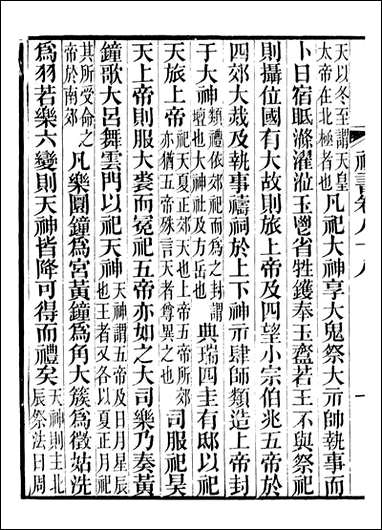 禮書卷八十八
天以冬至謂天皇
太帝在北極者也
凡祀大神享大鬼祭大示帥執事而
卜日宿眡滌濯涖玉鬯省牲鑊奉玉齍若王不與祭祀
則攝位國有大故則旅上帝及四望小宗伯兆五帝於
四郊大烖及執事禱祠於上下神示肆師類造上帝封
于大神
類禮依郊祀而爲之封謂
壇也大神社及方岳也
典瑞四圭有邸以祀
天旅上帝
祀天夏正郊天也上帝五帝所郊
亦猶五帝殊言天者尊異之也
司服祀昊
天上帝則服大裘而冕祀五帝亦如之大司樂乃奏黃
鐘歌大呂舞雲門以祀天神
天神謂五帝及日月星辰
也王者又各以夏正月祀
其所受命之
帝於南郊
凡樂圜鐘爲宮黃鐘爲角大簇爲徵姑洗
爲羽若樂六變則天神皆降可得而禮矣
天神則主北
辰祭法曰周